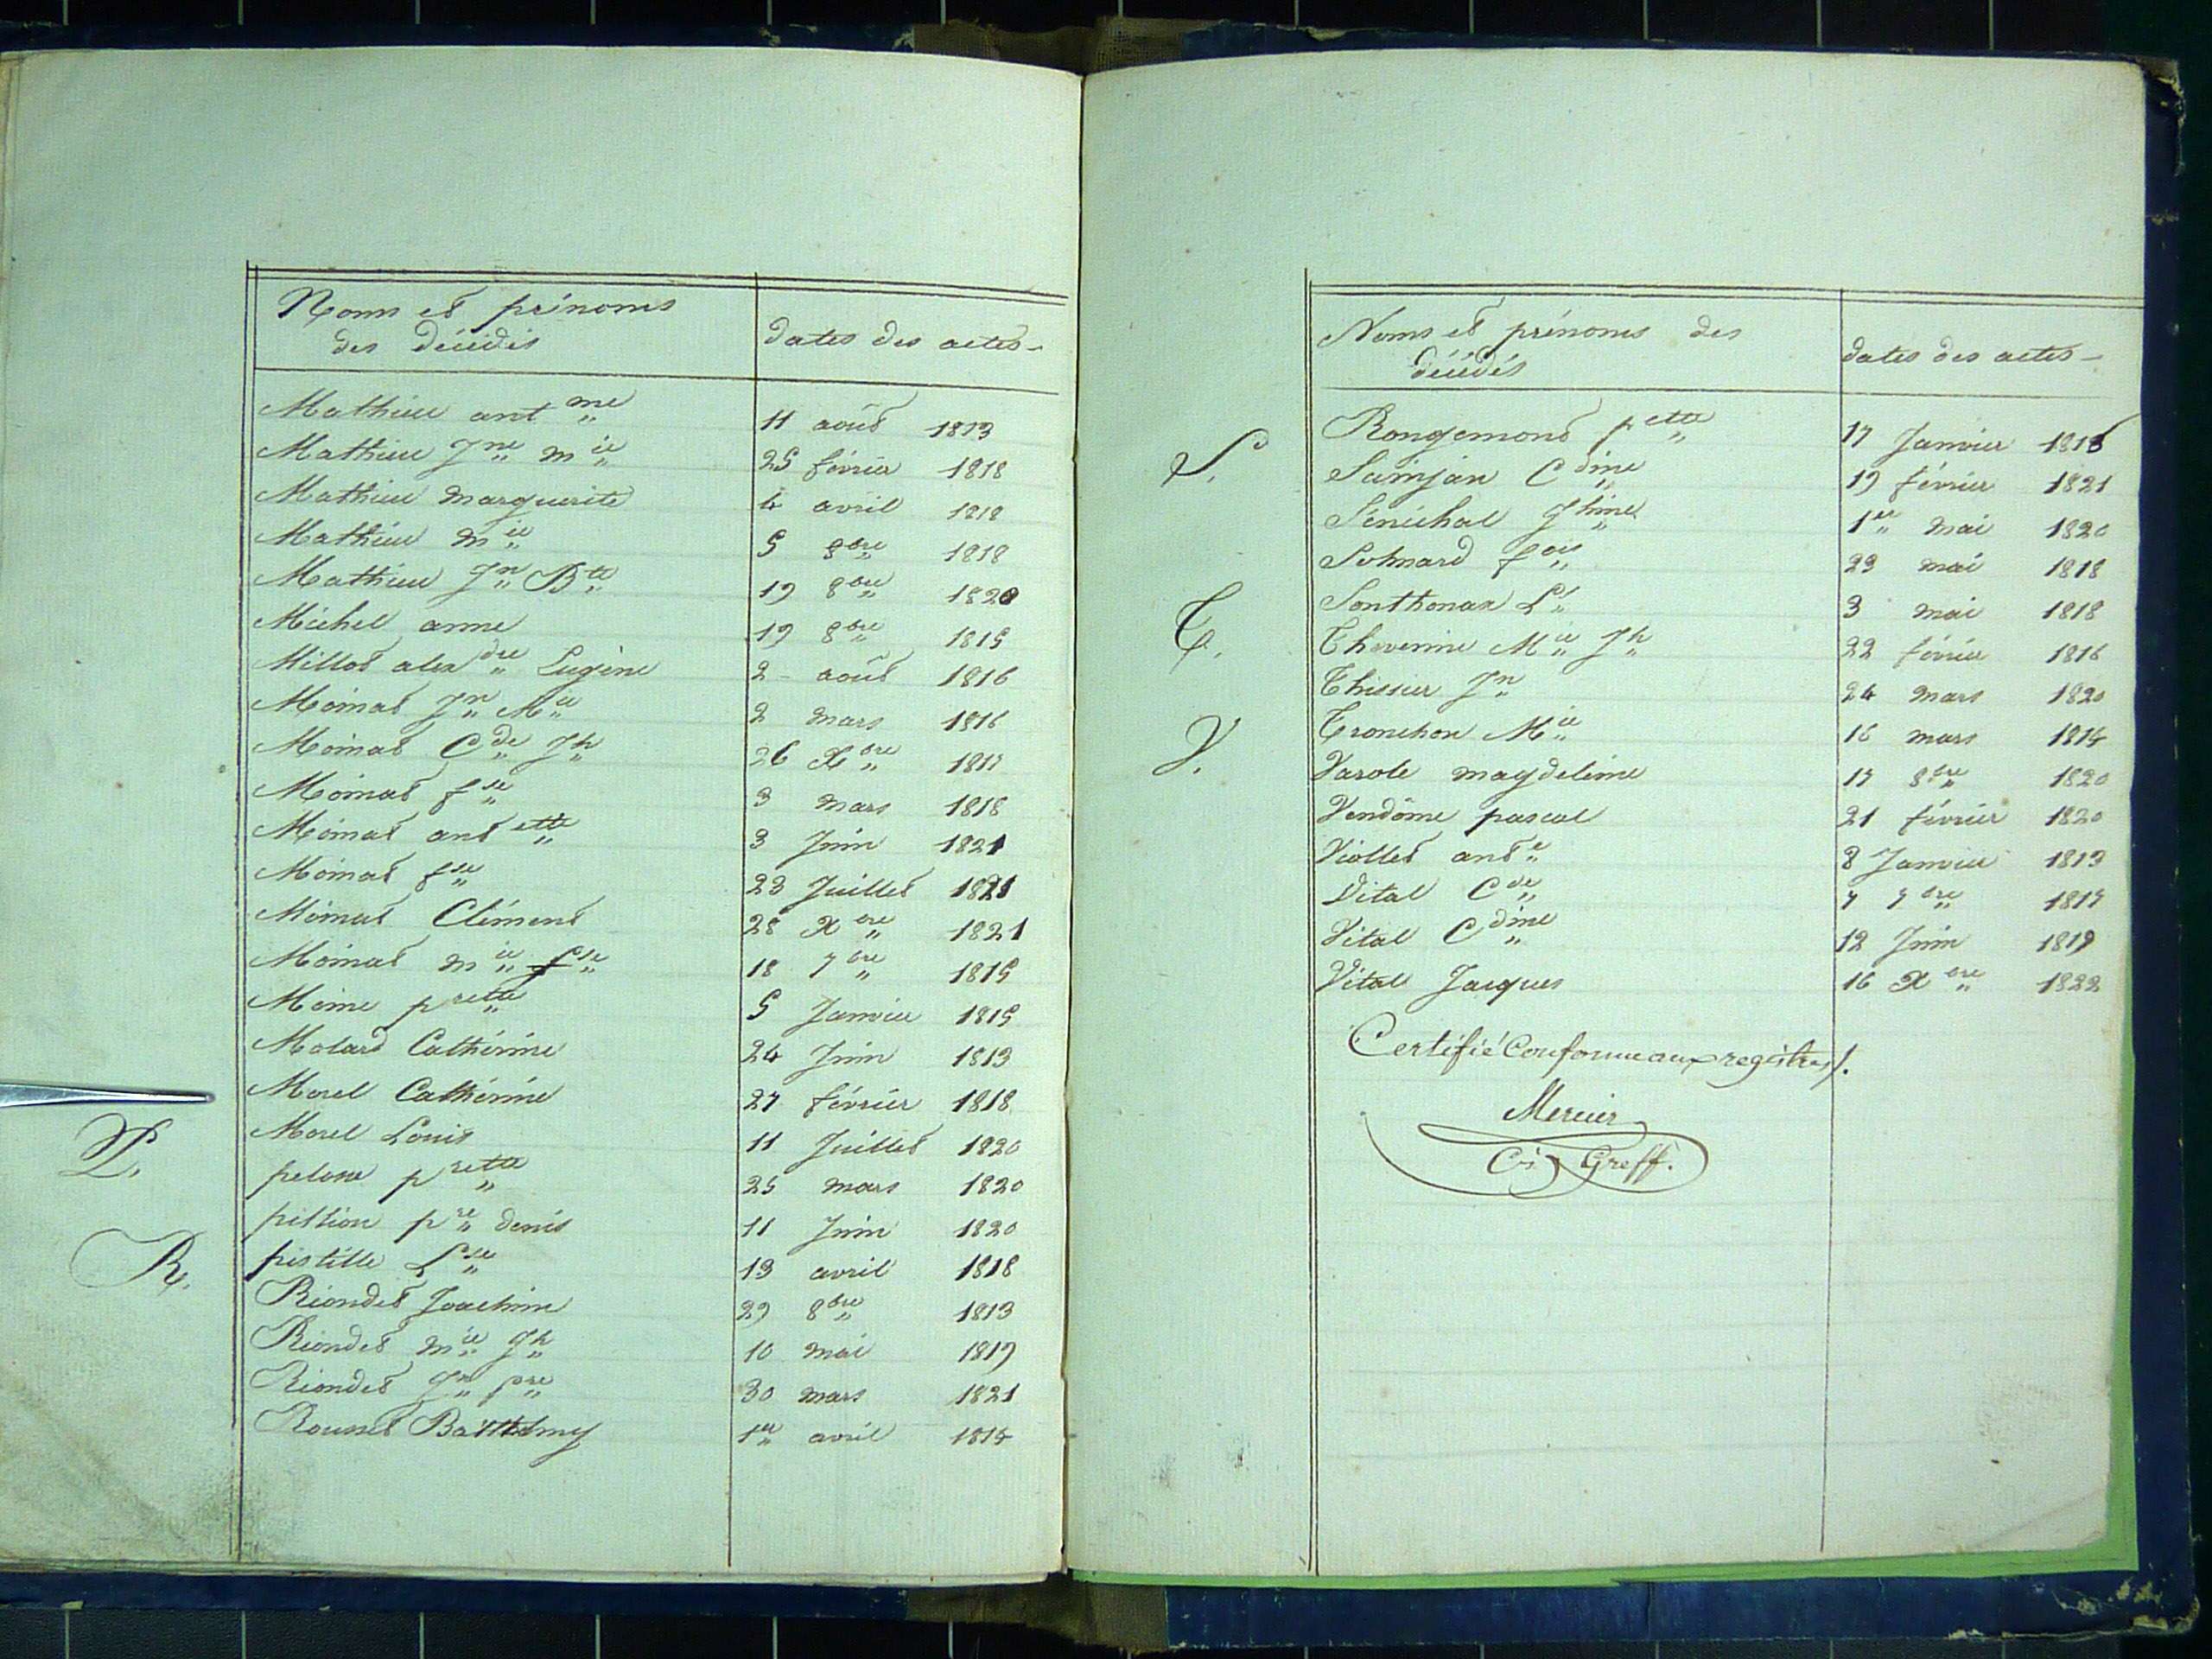 Noms et prénoms
des décédés
dates des actes
Mathieu ant me 11 août 1813
Mathieu Jne mie 25 février 1818
Mathieu marguerite 4 avril 1818
Mathieu mie 5 8bre 1818
Mathieu Jn Bte 19 8bre 1820
Michel anne 19 8bre 1815
Millot alexdre Eugène 2 août 1816
Moinat Jn Mie 2 mars 1816
Moinat Cde Jh 26 Xbre 1817
Moinat fse 3 mars 1818
Moinat antette 3 Juin 1821
Moinat fse 23 Juillet 1821
Moinat Clément 28 Xbre 1821
Moinat mie fse 18 7bre 1815
Moine prette 5 Janvier 1815
Molard Cathérine 24 Juin 1813
Morel Cathérine 27 février 1818
Morel Louis 11 Juillet 1820
P.
pelone prette 25 mars 1820
pittion pre denis 11 Juin 1820
pistille Lse 13 avril 1818
R.
Riondet Joachim 29 8bre 1813
Riondet mie Jh 10 mai 1819
Riondet Jn pre 30 mars 1821
Rousset Barthelmy 1er avril 1814
Noms et prénoms des
décédés
dates des actes
Rongemond pette 17 Janvier 1815
S.
Sainjan Cdine 19 février 1821
Sénéchal Jhine 1er mai 1820
Sohnard fois 23 mai 1818
Sonthonax Ls 3 mai 1818
T.
Thevenine Mie Jh 22 février 1816
Thissier Jn 24 mars 1820
Tronchon Mie 16 mars 1814
V.
Varole magdeleine 17 8bre 1820
Vendôme pascal 21 février 1820
Viollet ante 8 Janvier 1813
Vital Cde 7 7bre 1817
Vital Cdine 12 Juin 1819
Vital Jacques 16 Xbre 1822
Certifié Conforme aux registres/.
Mercier
Cis Greff.